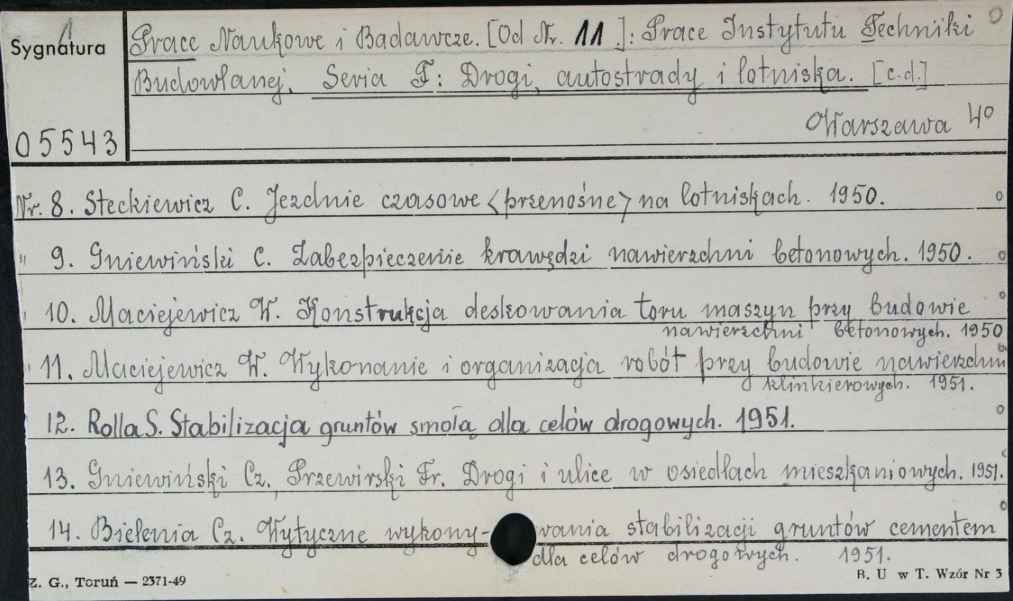 Sygnatura
Prace Naukowe i Badawcze. [Od Nr. 11]: Prace Instytutu Techniki
Budowlanej. Seria F: Drogi, autostrady i lotniska. [c.d.]
05543
Warszawa 4º
Nr. 8. Steckiewicz C. Jezdnie czasowe <przenośne> na lotniskach. 1950.
" 9. Gniewiński C. Zabezpieczenie krawędzi nawierzchni betonowych. 1950.
" 10. Maciejewicz W. Konstrukcja deskowania toru maszyn przy budowie
nawierzchni betonowych. 1950
" 11. Maciejewicz W. Wykonanie i organizacja robót przy budowie nawierzchni
klinkierowych. 1951.
12. Rolla S. Stabilizacja gruntów smołą dla celów drogowych. 1951.
13. Gniewiński Cz., Przewirski Fr. Drogi i ulice w osiedlach mieszkaniowych. 1951.
14. Bielenia Cz. Wytyczne wykony-wania stabilizacji gruntów cementem
dla celów drogowych. 1951.
Z. G., Toruń — 2371-49
B. U w T. Wzór Nr 3